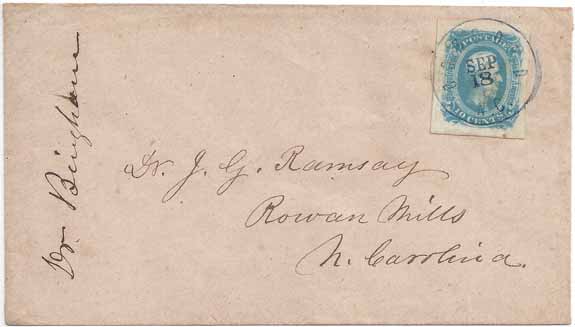 Dr. Bingham
POSTAGE
SEP
18
N C
Dr. J. G. Ramsay
Rowan Mills
N. Carolina.